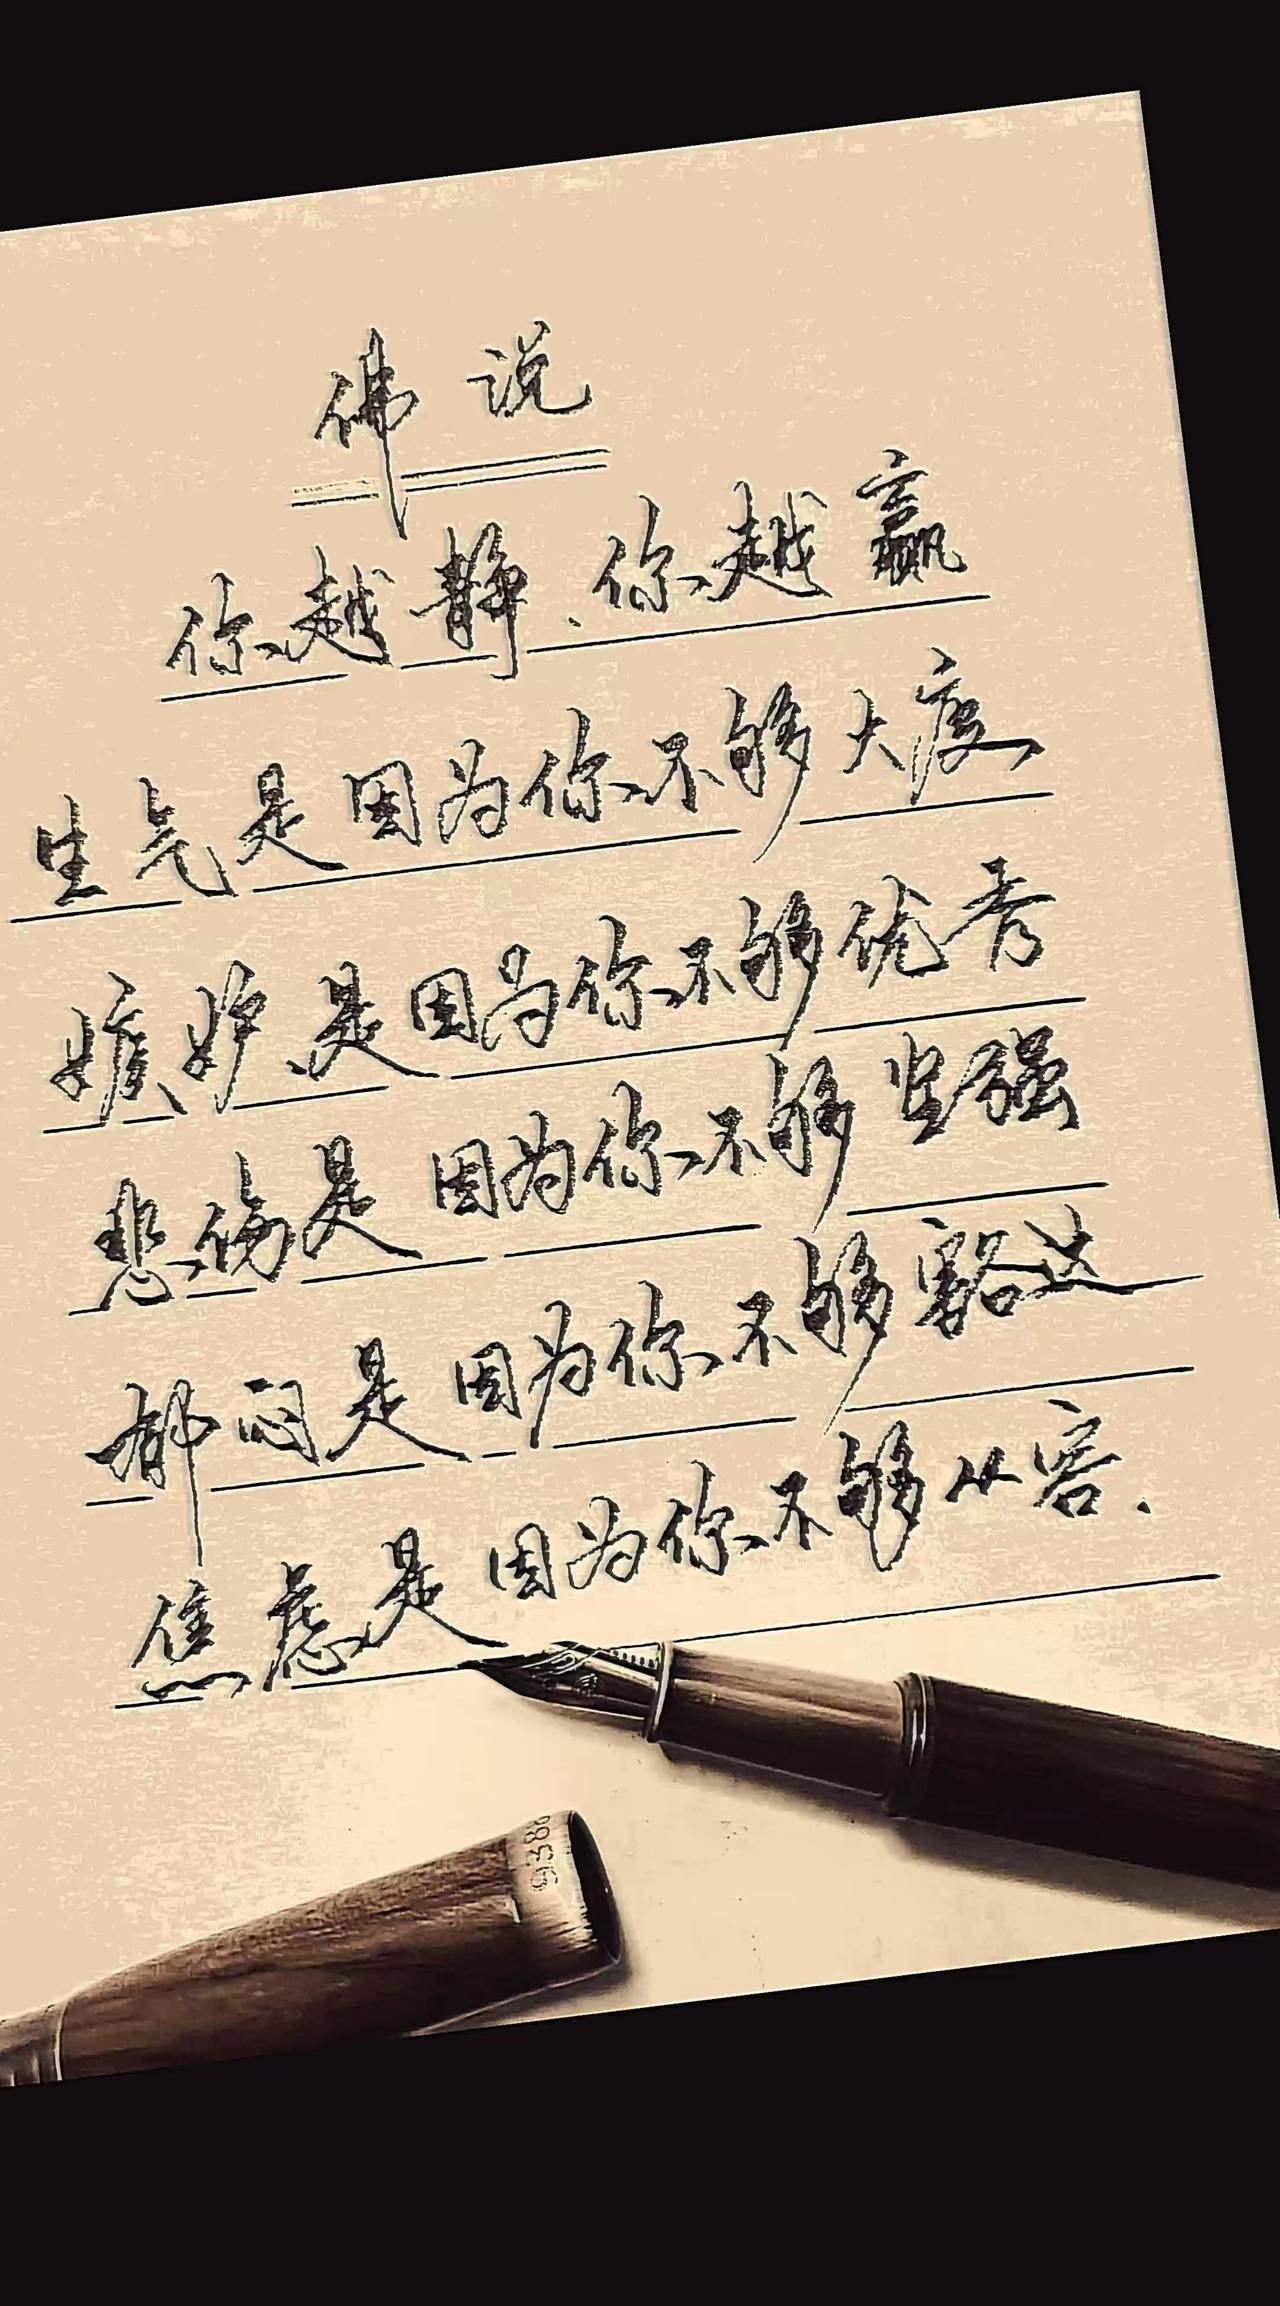 佛说
你越静、你越赢
生气是因为你不够大度
嫉妒是因为你不够优秀
悲伤是因为你不够坚强
郁闷是因为你不够豁达
焦虑是因为你不够从容.
9388